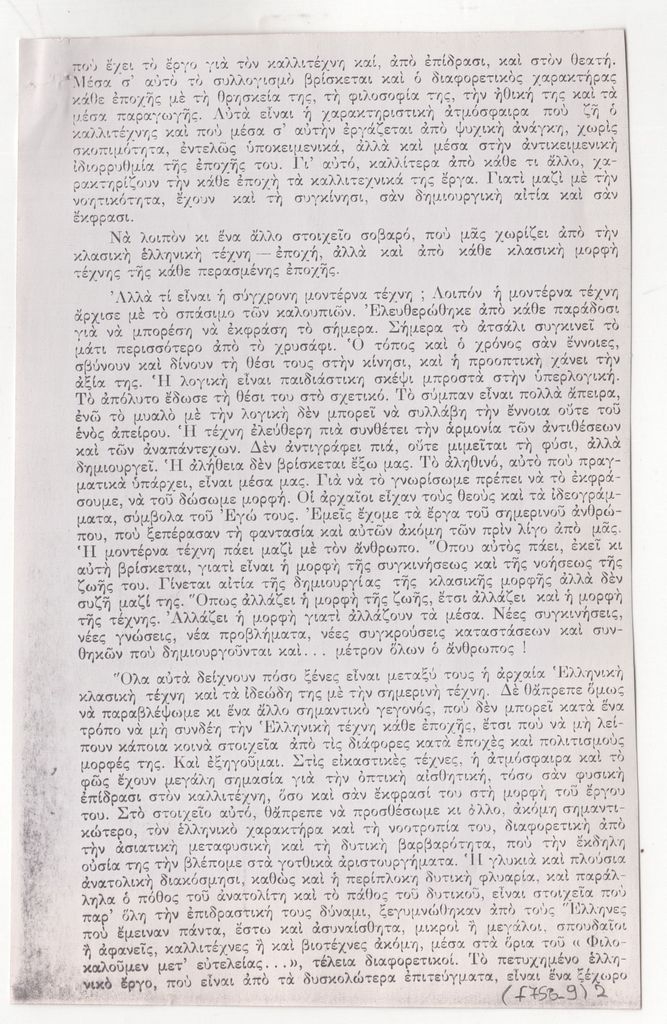 ποὺ ἔχει τὸ ἔργο γιὰ τὸν καλλιτέχνη καί, ἀπὸ ἐπίδρασι, καὶ στὸν θεατή.
Μέσα σ' αὐτὸ τὸ συλλογισμὸ βρίσκεται καὶ ὁ διαφορετικὸς χαρακτήρας
κάθε ἐποχῆς μὲ τὴ θρησκεία της, τὴ φιλοσοφία της, τὴν ἠθική της καὶ τὰ
μέσα παραγωγῆς. Αὐτὰ εἶναι ἡ χαρακτηριστικὴ ἀτμόσφαιρα ποὺ ζῆ ὁ
καλλιτέχνης καὶ ποὺ μέσα σ' αὐτὴν ἐργάζεται ἀπὸ ψυχικὴ ἀνάγκη, χωρὶς
σκοπιμότητα, ἐντελῶς ὑποκειμενικά, ἀλλὰ καὶ μέσα στὴν ἀντικειμενικὴ
ἰδιορρυθμία τῆς ἐποχῆς του. Γι' αὐτό, καλλίτερα ἀπὸ κάθε τι ἄλλο, χα-
ρακτηρίζουν τὴν κάθε ἐποχὴ τὰ καλλιτεχνικά της ἔργα. Γιατὶ μαζὶ μὲ τὴν
νοητικότητα, ἔχουν καὶ τὴ συγκίνησι, σὰν δημιουργικὴ αἰτία καὶ σὰν
ἔκφρασι.
Νὰ λοιπὸν κι ἕνα ἄλλο στοιχεῖο σοβαρό, ποὺ μᾶς χωρίζει ἀπὸ τὴν
κλασικὴ ἑλληνικὴ τέχνη — ἐποχή, ἀλλὰ καὶ ἀπὸ κάθε κλασικὴ μορφὴ
τέχνης τῆς κάθε περασμένης ἐποχῆς.
Ἀλλὰ τί εἶναι ἡ σύγχρονη μοντέρνα τέχνη ; Λοιπὸν ἡ μοντέρνα τέχνη
ἄρχισε μὲ τὸ σπάσιμο τῶν καλουπιῶν. Ἐλευθερώθηκε ἀπὸ κάθε παράδοσι
γιὰ νὰ μπορέση νὰ ἐκφράση τὸ σήμερα. Σήμερα τὸ ἀτσάλι συγκινεῖ τὸ
μάτι περισσότερο ἀπὸ τὸ χρυσάφι. Ὁ τόπος καὶ ὁ χρόνος σὰν ἔννοιες,
σβύνουν καὶ δίνουν τὴ θέσι τους στὴν κίνησι, καὶ ἡ προοπτικὴ χάνει τὴν
ἀξία της. Ἡ λογικὴ εἶναι παιδιάστικη σκέψι μπροστὰ στὴν ὑπερλογική.
Τὸ ἀπόλυτο ἔδωσε τὴ θέσι του στὸ σχετικό. Τὸ σύμπαν εἶναι πολλὰ ἄπειρα,
ἐνῶ τὸ μυαλὸ μὲ τὴν λογικὴ δὲν μπορεῖ νὰ συλλάβη τὴν ἔννοια οὔτε τοῦ
ἑνὸς ἀπείρου. Ἡ τέχνη ἐλεύθερη πιὰ συνθέτει τὴν ἁρμονία τῶν ἀντιθέσεων
καὶ τῶν ἀναπάντεχων. Δὲν ἀντιγράφει πιά, οὔτε μιμεῖται τὴ φύσι, ἀλλὰ
δημιουργεῖ. Ἡ ἀλήθεια δὲν βρίσκεται ἔξω μας. Τὸ ἀληθινό, αὐτὸ ποὺ πραγ-
ματικὰ ὑπάρχει, εἶναι μέσα μας. Γιὰ νὰ τὸ γνωρίσωμε πρέπει νὰ τὸ ἐκφρά-
σουμε, νὰ τοῦ δώσωμε μορφή. Οἱ ἀρχαῖοι εἶχαν τοὺς θεοὺς καὶ τὰ ἰδεογράμ-
ματα, σύμβολα τοῦ Ἐγώ τους. Ἐμεῖς ἔχομε τὰ ἔργα τοῦ σημερινοῦ ἀνθρώ-
που, ποὺ ξεπέρασαν τὴ φαντασία καὶ αὐτῶν ἀκόμη τῶν πρὶν λίγο ἀπὸ μᾶς.
Ἡ μοντέρνα τέχνη πάει μαζὶ μὲ τὸν ἄνθρωπο. Ὅπου αὐτὸς πάει, ἐκεῖ κι
αὐτὴ βρίσκεται, γιατὶ εἶναι ἡ μορφὴ τῆς συγκινήσεως καὶ τῆς νοήσεως τῆς
ζωῆς του. Γίνεται αἰτία τῆς δημιουργίας τῆς κλασικῆς μορφῆς ἀλλὰ δὲν
συζῆ μαζί της. Ὅπως ἀλλάζει ἡ μορφὴ τῆς ζωῆς, ἔτσι ἀλλάζει καὶ ἡ μορφὴ
τῆς τέχνης. Ἀλλάζει ἡ μορφὴ γιατὶ ἀλλάζουν τὰ μέσα. Νέες συγκινήσεις,
νέες γνώσεις, νέα προβλήματα, νέες συγκρούσεις καταστάσεων καὶ συν-
θηκῶν ποὺ δημιουργοῦνται καὶ... μέτρον ὅλων ὁ ἄνθρωπος !
Ὅλα αὐτὰ δείχνουν πόσο ξένες εἶναι μεταξύ τους ἡ ἀρχαία Ἑλληνικὴ
κλασικὴ τέχνη καὶ τὰ ἰδεώδη της μὲ τὴν σημερινὴ τέχνη. Δὲ θἄπρεπε ὅμως
νὰ παραβλέψωμε κι ἕνα ἄλλο σημαντικὸ γεγονός, ποὺ δὲν μπορεῖ κατὰ ἕνα
τρόπο νὰ μὴ συνδέη τὴν Ἑλληνικὴ τέχνη κάθε ἐποχῆς, ἔτσι ποὺ νὰ μὴ λεί-
πουν κάποια κοινὰ στοιχεῖα ἀπὸ τὶς διάφορες κατὰ ἐποχὲς καὶ πολιτισμοὺς
μορφές της. Καὶ ἐξηγοῦμαι. Στὶς εἰκαστικὲς τέχνες, ἡ ἀτμόσφαιρα καὶ τὸ
φῶς ἔχουν μεγάλη σημασία γιὰ τὴν ὀπτικὴ αἰσθητική, τόσο σὰν φυσικὴ
ἐπίδρασι στὸν καλλιτέχνη, ὅσο καὶ σὰν ἔκφρασί του στὴ μορφὴ τοῦ ἔργου
του. Στὸ στοιχεῖο αὐτό, θἄπρεπε νὰ προσθέσωμε κι ἄλλο, ἀκόμη σημαντι-
κώτερο, τὸν ἑλληνικὸ χαρακτήρα καὶ τὴ νοοτροπία του, διαφορετικὴ ἀπὸ
τὴν ἀσιατικὴ μεταφυσικὴ καὶ τὴ δυτικὴ βαρβαρότητα, ποὺ τὴν ἔκδηλη
οὐσία της τὴν βλέπομε στὰ γοτθικὰ ἀριστουργήματα. Ἡ γλυκιὰ καὶ πλούσια
ἀνατολικὴ διακόσμησι, καθὼς καὶ ἡ περίπλοκη δυτικὴ φλυαρία, καὶ παράλ-
ληλα ὁ πόθος τοῦ ἀνατολίτη καὶ τὸ πάθος τοῦ δυτικοῦ, εἶναι στοιχεῖα ποὺ
παρ' ὅλη τὴν ἐπιδραστική τους δύναμι, ξεγυμνώθηκαν ἀπὸ τοὺς Ἕλληνες
ποὺ ἔμειναν πάντα, ἔστω καὶ ἀσυναίσθητα, μικροὶ ἢ μεγάλοι, σπουδαῖοι
ἢ ἀφανεῖς, καλλιτέχνες ἢ καὶ βιοτέχνες ἀκόμη, μέσα στὰ ὅρια τοῦ « Φιλο-
καλοῦμεν μετ' εὐτελείας...», τέλεια διαφορετικοί. Τὸ πετυχημένο ἑλλη-
νικὸ ἔργο, ποὺ εἶναι ἀπὸ τὰ δυσκολώτερα ἐπιτεύγματα, εἶναι ἕνα ξέχωρο